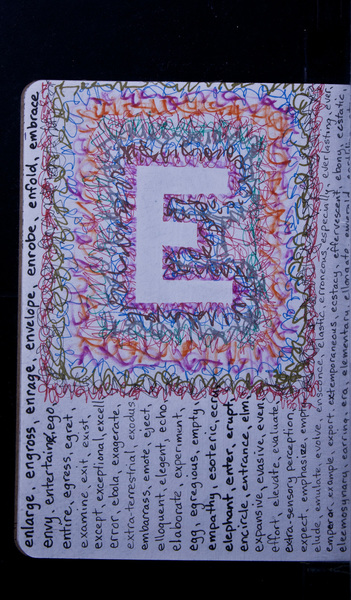 E
enlarge, engross, enrage, envelope, enrobe, enfold, embrace
envy, entertaine, ego,
entire, egress, egret,
examine, exit, exist,
except, exceptional, excell
error, ebola, exagerate,
extra-terrestrial, exodus
embarrass, emote, eject,
elloquent, elegent, echo
elaborate, experimunt,
egg, egregious, empty
empathy, esoteric,
elephant, enter, erupt,
encircle, entrance, elm,
expansive, evasive, even,
effort, elevate, evaluate
extra-sensory perception,
expect, emphasize,
elude, emulate, evolve, existance, elastic, erroneous, especially, everlasting, ever,
emperor, example, export, extemporaneous, ecstacy, effervescent, ebony, ecstatic,
eleemosynary, earring, era, elementary, ellongate, emerald,